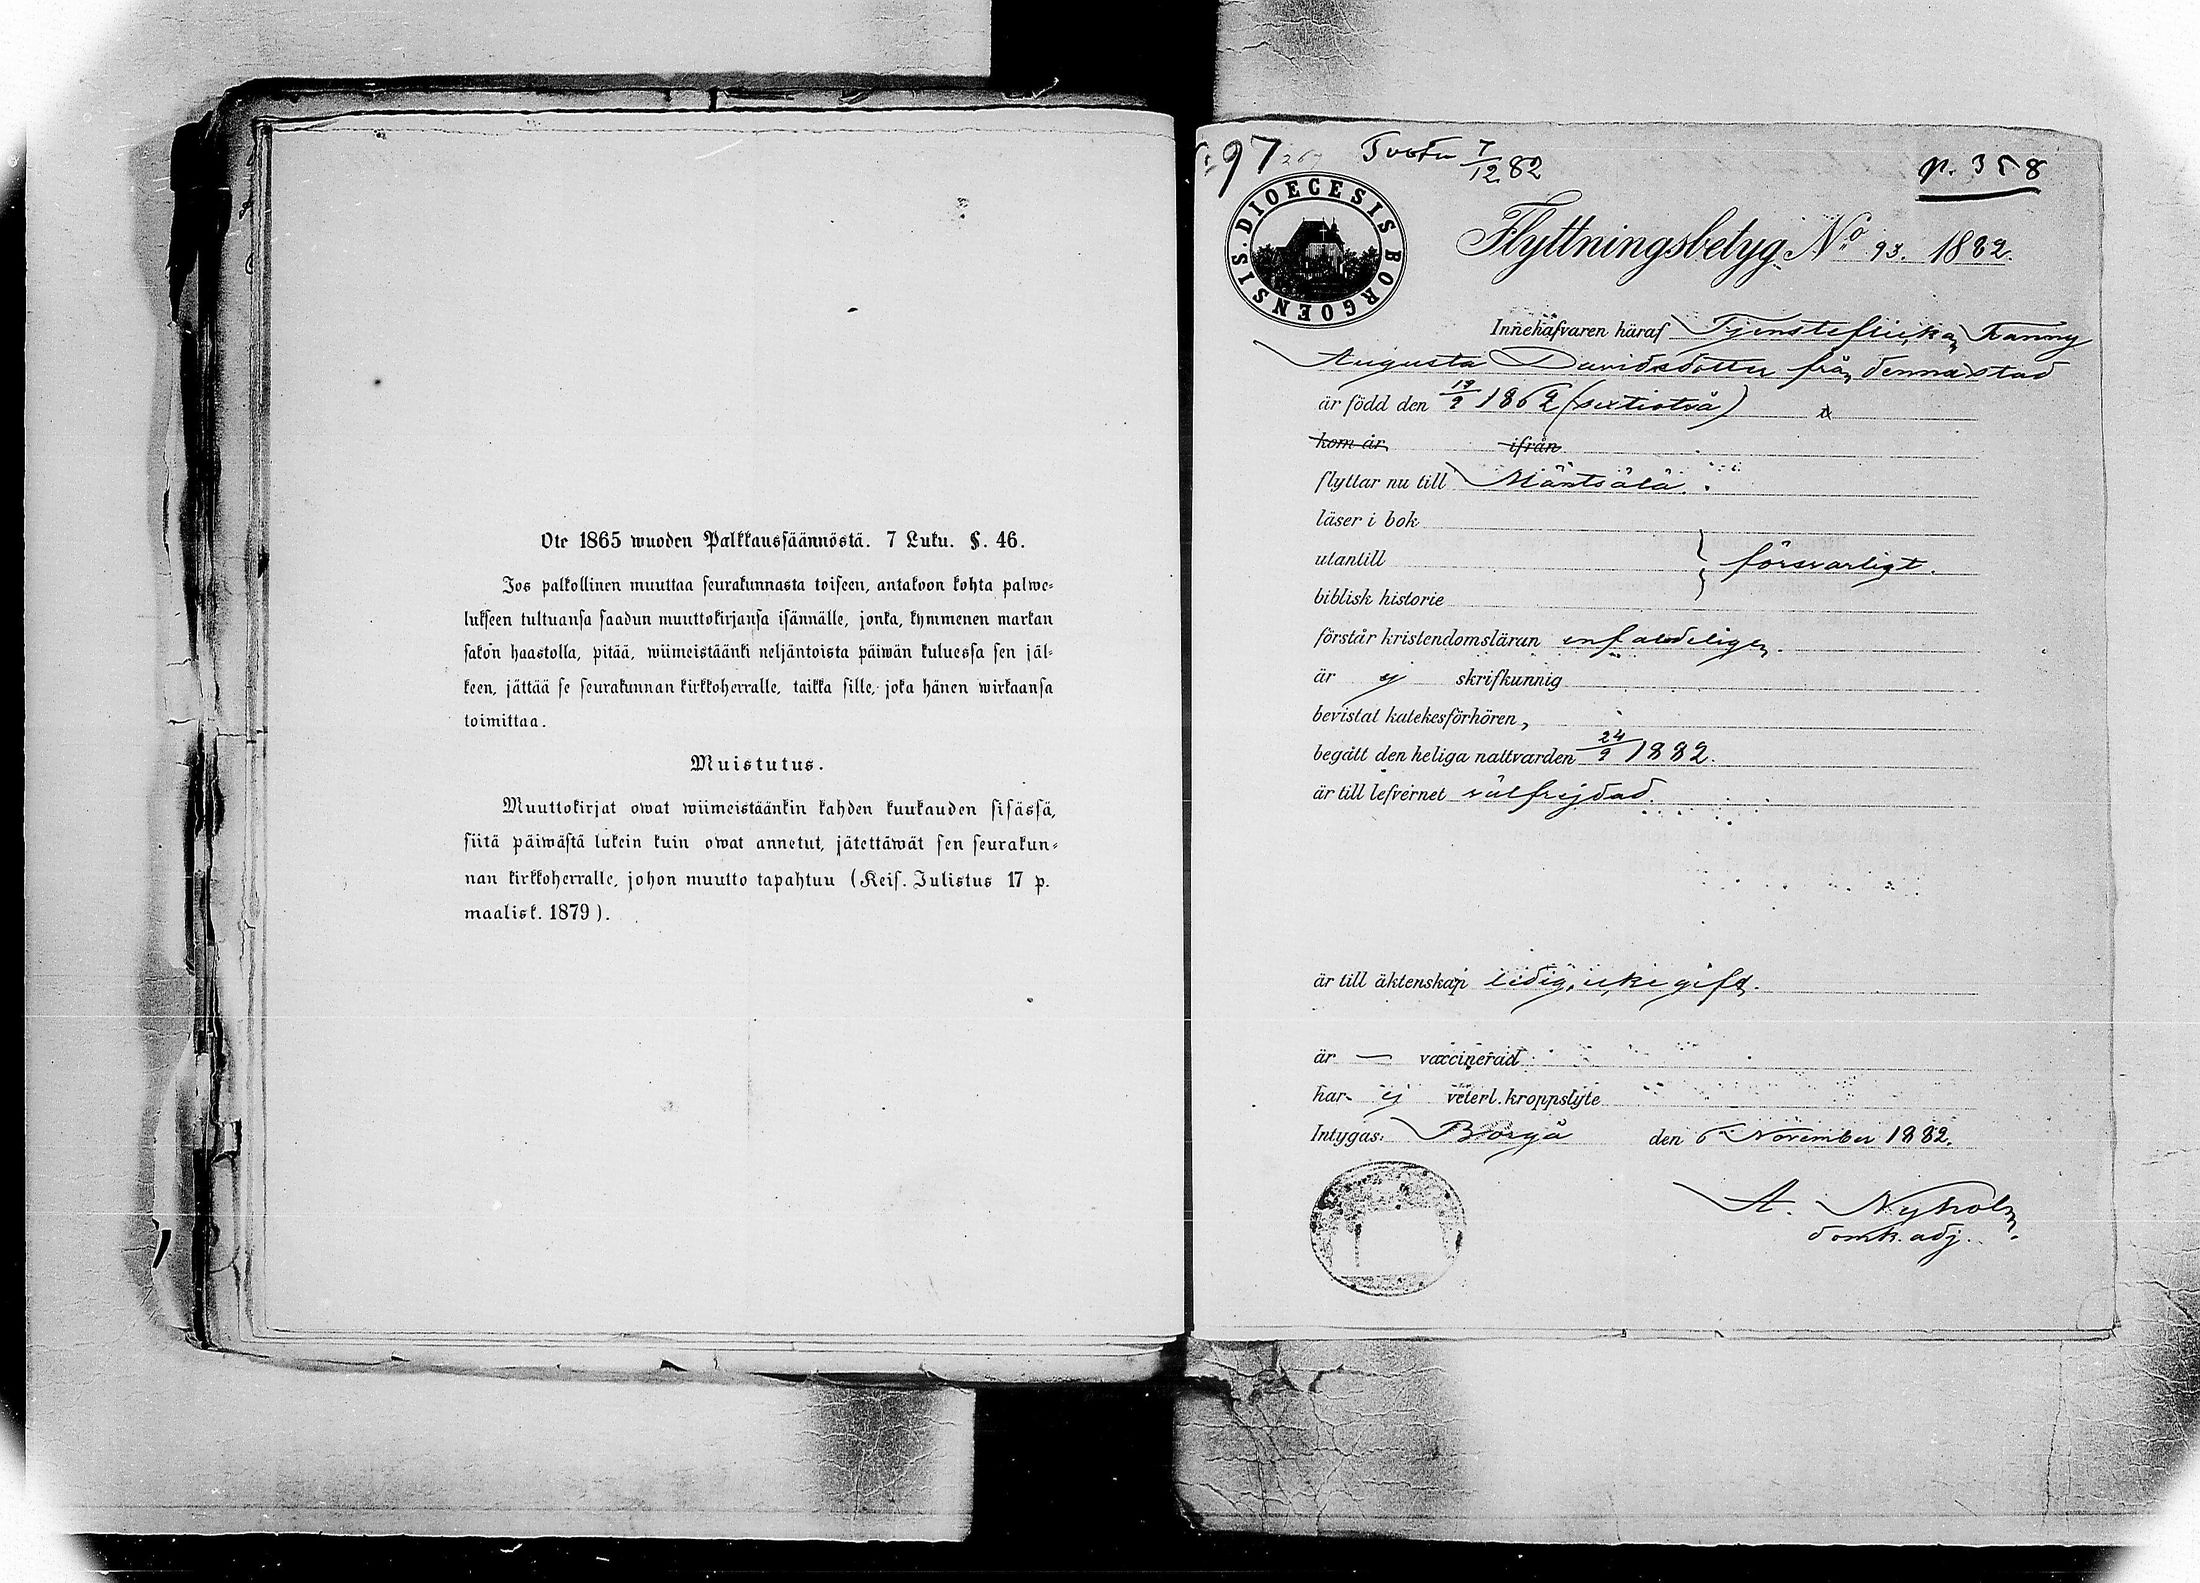 Ote 1865 wuoden Palkkaussäännöstä. 7 Luku. §. 46.
Jos palkollinen muuttaa seurakunnasta toiseen, antakoon kohta palwe-
lukseen tultuansa saadun muuttokirjansa isännälle, jonka, kymmenen markan
sakon haastolla, pitää, wiimeistäänki neljäntoista päiwän kuluessa sen jäl-
keen, jättää se seurakunnan kirkkoherralle, taikka sille, joka hänen wirkaansa
toimittaa.
Muistutus.
Muuttokirjat owat wiimeistäänkin kahden kuukauden sisässä,
siitä päiwästä lukein kuin owat annetut, jätettäwät sen seurakun-
nan kirkkoherralle, johon muutto tapahtuu (Keis. Julistus 17 p.
maalisk. 1879).
97
Tuotu 7/12 82
p. 358
DIOECESIS BORGOENSIS.
Flyttningsbetyg No 93. 1882.
Innehafvaren häraf Tjensteflickan Fanny
Augusta Davidsdotter från denna stad
är född den 19/9 1862 (sextiotvå)
kom år ifrån
flyttar nu till Mäntsälä.
läser i bok
utantill } försvarligt.
biblisk historie
förstår kristendomsläran enfaldeligen.
är ej skrifkunnig
bevistat katekesförhören,
begått den heliga nattvarden 24/9 1882.
är till lefvernet välfrejdad.
är till äktenskap ledig, icke gift.
är — vaccinerad
har ej veterl. kroppslyte
Intygas: Borgå den 6 November 1882.
A. Nyholm.
domk. adj.